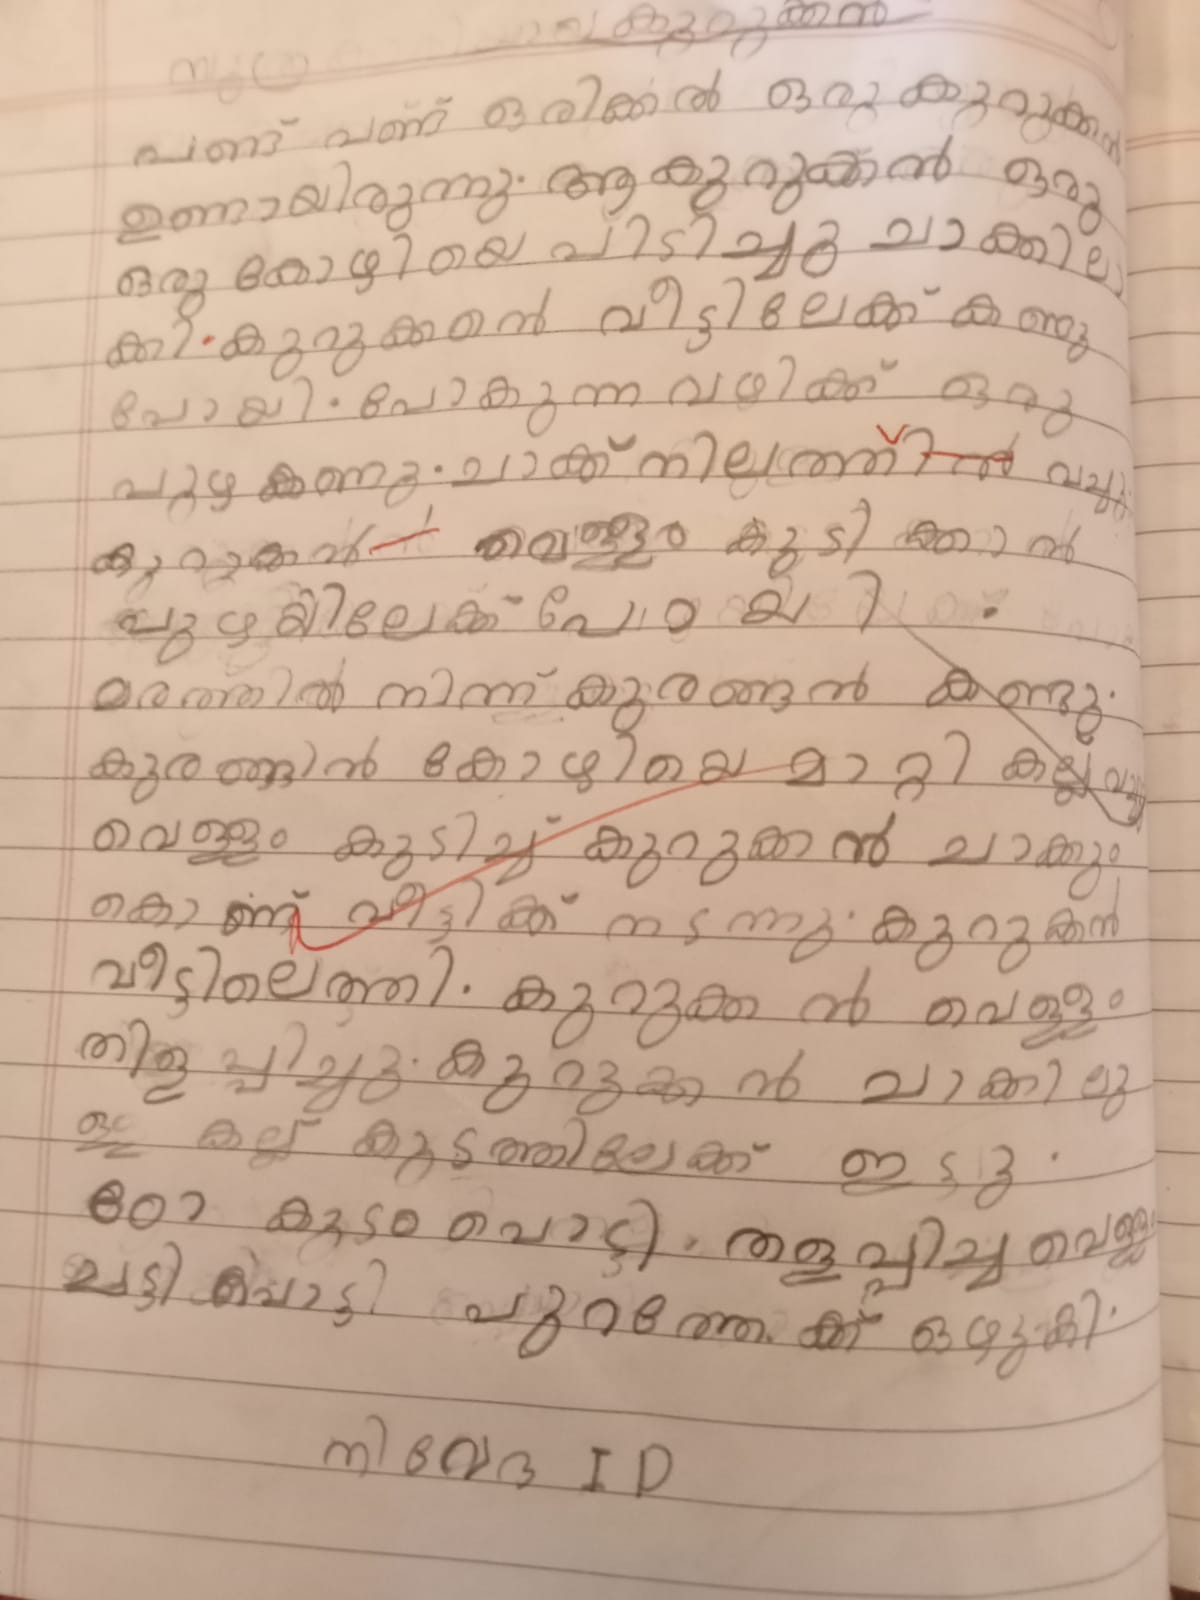 കുറുക്കൻ
പണ്ട് പണ്ട് ഒരിക്കൽ ഒരു കുറുക്കൻ
ഉണ്ടായിരുന്നു. ആ കുറുക്കൻ ഒരു
ഒരു കോഴിയെ പിടിച്ചു ചാക്കിലാ
ക്കി. കുറുക്കനെൻ വീട്ടിലേക്ക് കണ്ടു
പോയി. പോകുന്ന വഴിക്ക് ഒരു
പുഴ കണ്ടു. ചാക്ക് നിലത്ത് വച്ചു
കുറുകൻ വെള്ളം കുടിക്കാൻ
പുഴയിലേക്ക് പോയി.
മരത്തിൽ നിന്ന് കുരങ്ങൻ കണ്ടു.
കുരങ്ങിൻ കോഴിയെ മാറ്റി കല്ല് വച്ചു
വെള്ളം കുടിച്ച് കുറുക്കൻ ചാക്കും
കൊണ്ട് വീട്ടിക്ക് നടന്നു. കുറുകൻ
വീട്ടിലെത്തി. കുറുക്കൻ വെള്ളം
തിളപ്പിച്ചു. കുറുക്കൻ ചാക്കിലു
ള്ള കല്ല് കുടത്തിലേക്ക് ഇട്ടു.
ഠോ കുടം പൊട്ടി. തളപ്പിച്ച വെള്ളം
ചട്ടി പൊട്ടി പുറത്തേക്ക് ഒഴുകി.
നിവേദ I D